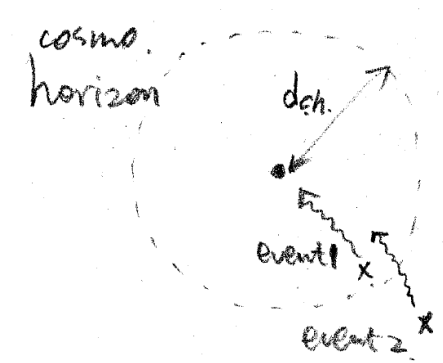 cosmo.
horizon
dc.h.
event 1
event 2